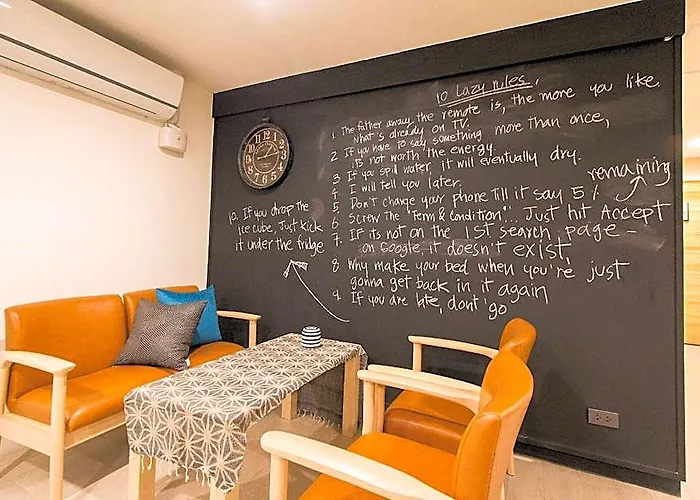 10 Lazy rules.
1. The father away the remote is, the more you like
what's already on TV.
2 If you have to say something more than once,
it's not worth the energy.
3. If you spill water, it will eventually dry.
4 I will tell you later.
5. Don't change your phone till it say 5% remaining
6 Screw the "Term & Condition"... Just hit Accept
7. If its not on the 1st search page -
on Google, it doesn't exist,
8. Why make your bed when you're just
gonna get back in it again
9. If you are late, dont go
10. If you drop the
ice cube, Just kick
it under the fridge
12
1
2
3
4
5
6
7
8
9
10
11